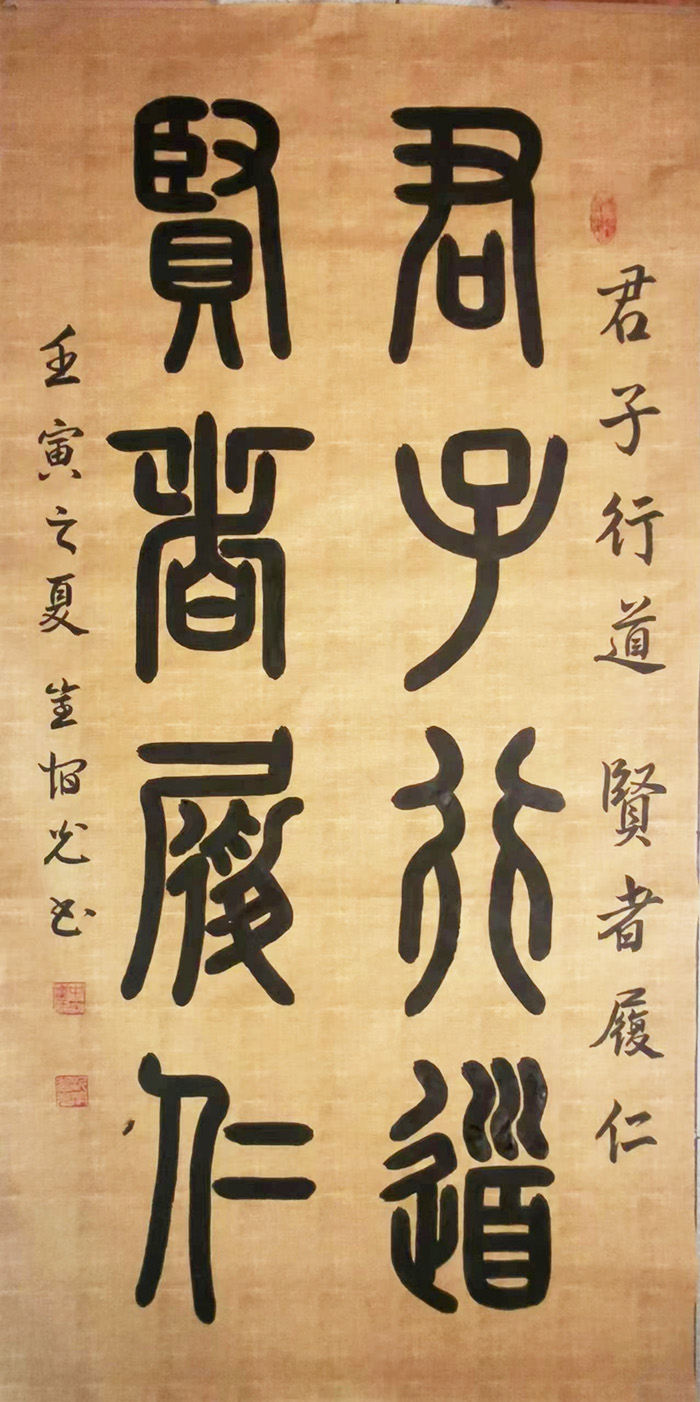 君子行道 賢者履仁
君子行道
賢者履仁
壬寅之夏 光书